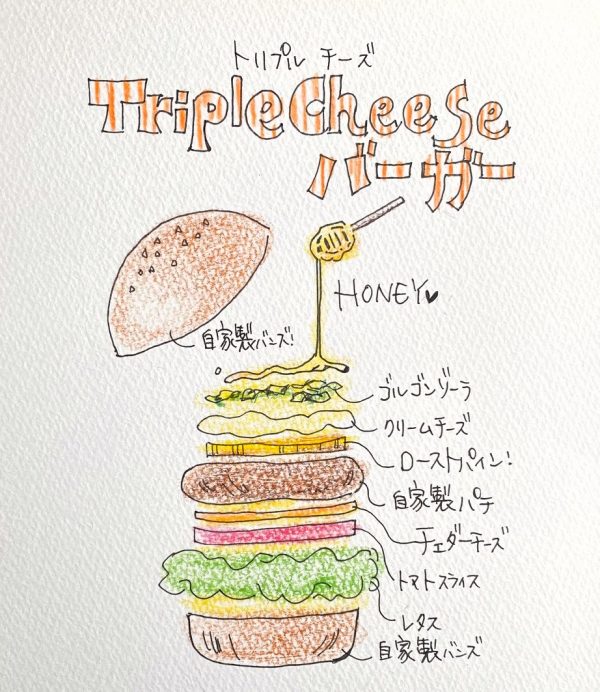 トリプル チーズ
Triple Cheese
バーガー
HONEY♥
自家製バンズ!
ゴルゴンゾーラ
クリームチーズ
ローストパイン!
自家製パテ
チェダーチーズ
トマトスライス
レタス
自家製バンズ